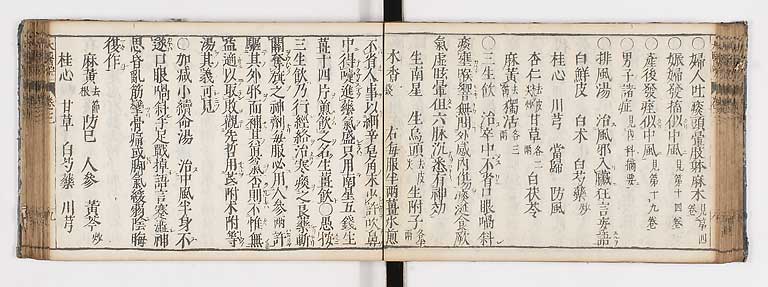 ○婦人吐痰頭暈腹麻麻木見第四卷
○娠婦發搐似中風見第十四卷
○產後發痙似中風見第十九卷
○男子諸症見内科摘要
○排風湯 治風邪入臟狂言妄語
白鮮皮 白朮 白芍藥炒
桂心 川芎 當歸 防風
杏仁 甘草各二兩 白茯苓
麻黃去節 獨活各三兩
○三生飲 治卒中不省口眼喎斜
痰壅喉響無問外感内傷痰涎食厥
氣虛眩暈但六脉沉悉有神効
生南星 生烏頭去皮 生附子各半兩
木香 右每服半兩薑水煎
不省人事以細辛皂角末少許吹鼻
中得嚏進藥氣盛只用南星五錢生
薑十四片煎飲之名生薑飲○愚按
三生飲乃行經絡治寒痰之良藥斬
關奪旗之神劑每服必用人參兩許
驅其外邪而補其真氣否則不惟無
益適以取敗觀先哲用芪附术附等
湯其義可見
○加減小續命湯 治中風半身不
遂口眼喎斜手足戰掉語言蹇澁神
思昏亂筋攣骨痛或脚氣緩弱陰晦
復作
麻黃去節根 防已 人參 黃芩炒
桂心 甘草 白芍藥 川芎